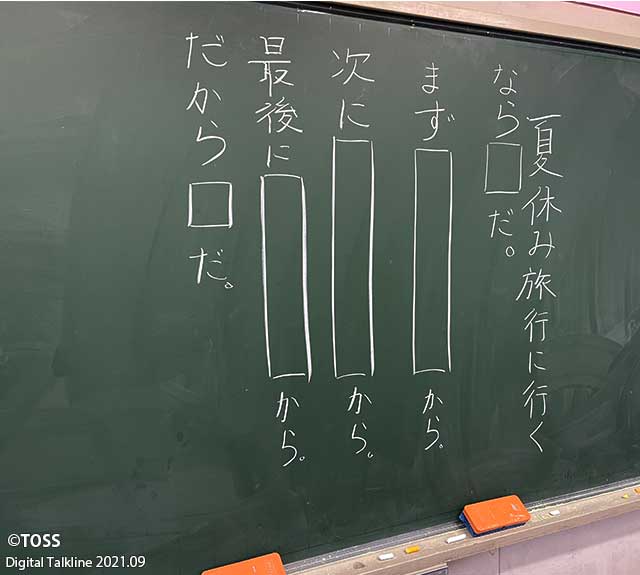 夏休み旅行に行く
なら□だ。
まず□から。
次に□から。
最後に□から。
だから□だ。
©TOSS
Digital Talkline 2021.09